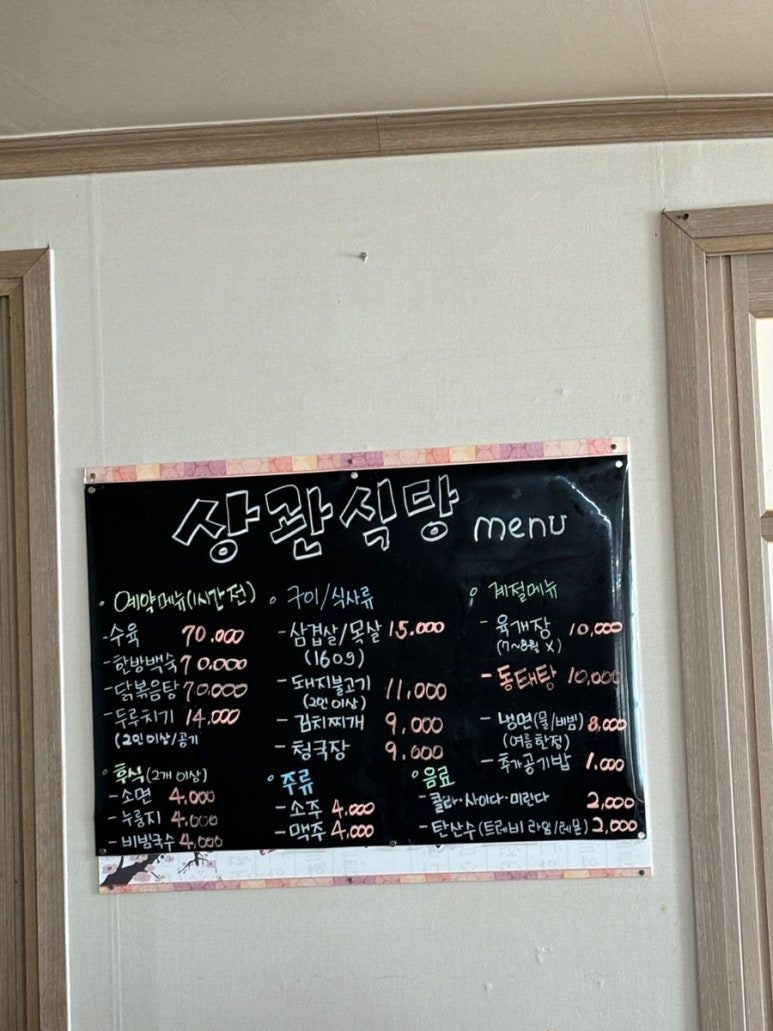 상관식당 menu
◦ 예약메뉴(1시간 전)
- 수육 70.000
- 한방백숙 70.000
- 닭볶음탕 70.000
- 두루치기 14.000
(2인 이상/공기
◦ 후식(2개 이상)
- 소면 4,000
- 누룽지 4,000
- 비빔국수 4,000
◦ 구이/식사류
- 삼겹살/목살 15.000
(160g)
- 돼지불고기 11,000
(2인 이상)
- 김치찌개 9,000
- 청국장 9.000
◦ 주류
- 소주 4,000
- 맥주 4,000
◦ 계절메뉴
- 육개장 10,000
(7~8월 X)
- 동태탕 10,000
- 냉면(물/비빔) 8,000
(여름한정)
- 추가공기밥 1,000
◦ 음료
- 콜라·사이다·미린다 2,000
- 탄산수(트레비 라임/레몬) 2,000